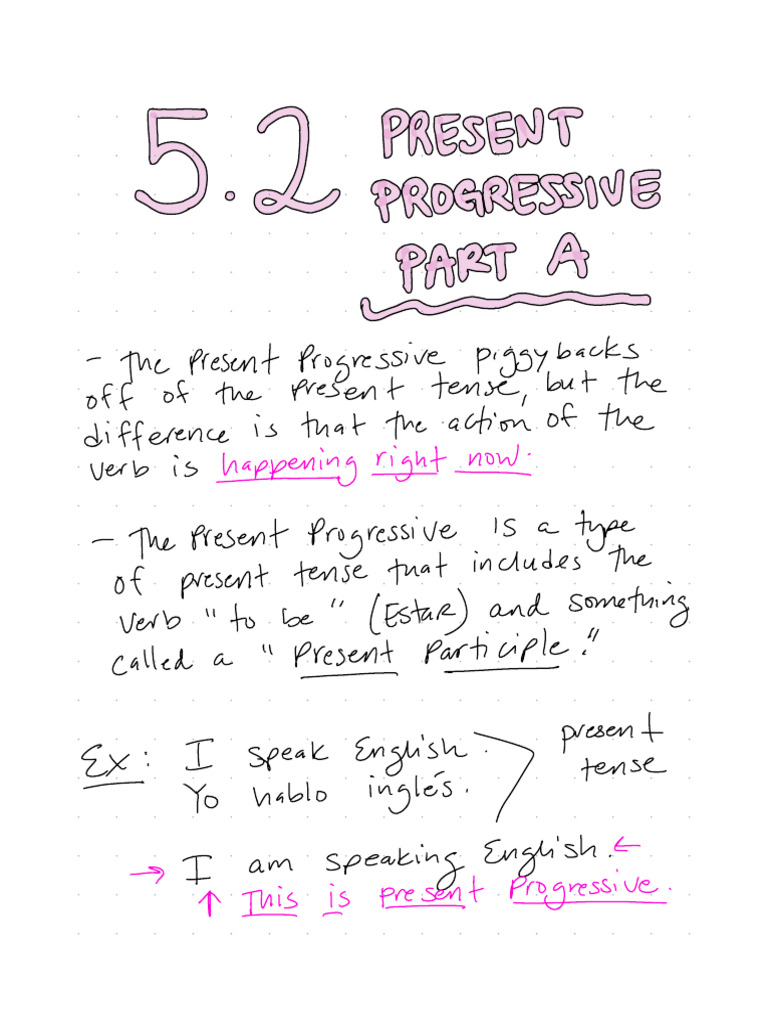 5.2 PRESENT
PROGRESSIVE
PART A
- The Present Progressive piggybacks
off of the present tense, but the
difference is that the action of the
verb is happening right now.
- The Present Progressive is a type
of present tense that includes the
verb "to be" (Estar) and something
called a "Present Participle."
Ex: I speak English.
Yo hablo inglés.
present
tense
→ I am speaking English. ←
↑ This is present Progressive.